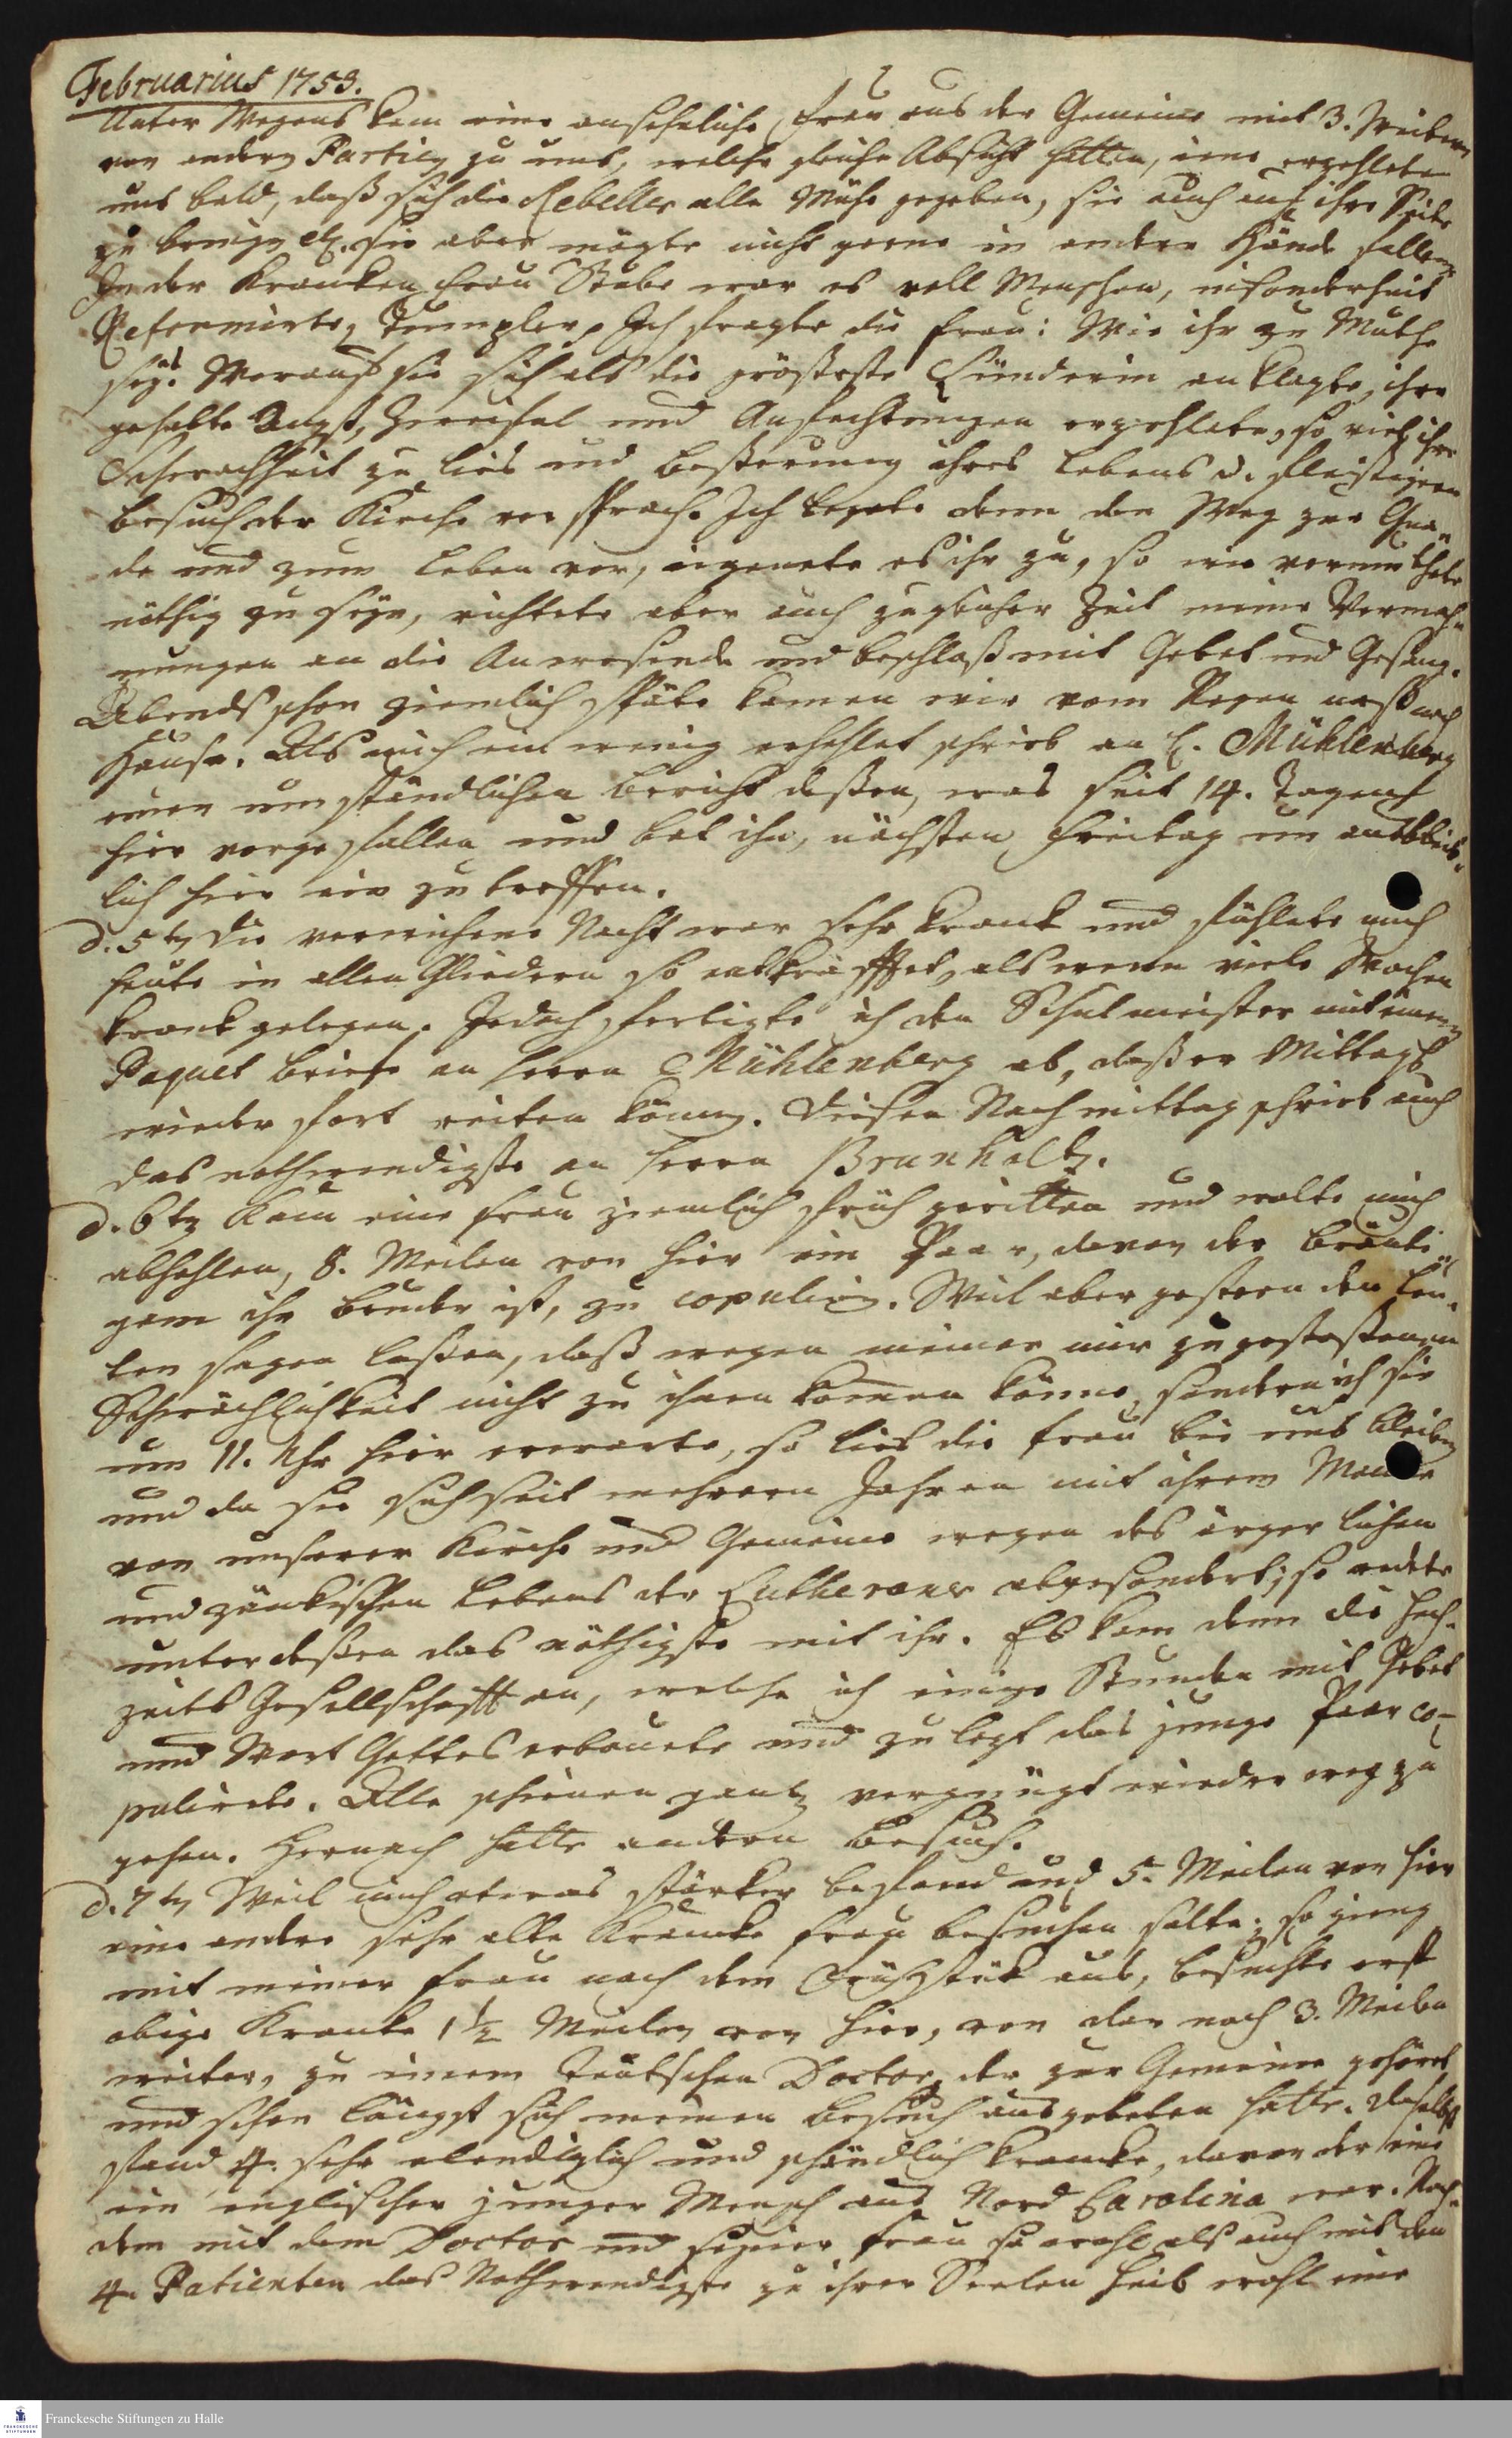 Februarius 1753.
Unter Weges kam eine ansehnliche Frau aus der Gemeine mit 3. Weibern
von andern Partien zu uns, welche gleiche Absicht hatten, jene erzehlete
uns bald, daß sich die Rebeller alle Mühe gegeben, sie auch auf ihre Seite
zu bringen etc. sie aber mögte nicht gerne in andere Hände fallen.
In der Krancken Frau Stube war es voll Menschen, insonderheit
Reformirte, Tumpler, Ich fragte die Frau: Wie ihr zu Muthe
sey? Worauf sie sich als die gröste Sünderin anklagte, ihre
gehabte Angst, Zweifel und Anfechtungen erzehlete, so viel ihre
Schwachheit zu lies und Beßerung ihres Lebens u. fleißigern
Besuch der Kirche versprach. Ich legte denn den Weg zur Gna-
de und zum Leben vor, eigenete es ihr zu, so wie vermuthete
nöthig zu seyn, richtete aber auch zugleicher Zeit meine Vermah-
nungen an die Anwesende und beschloß mit Gebet und Gesang.
Abends schon ziemlich späte kamen wir vom Regen naß nach
Hause. Als mich ein wenig erhohlet schrieb an H. Mühlenberg
einen umständlichen Bericht deßen, was seit 14. Tagen
hier vorgefallen und bat ihn, nächsten Freitag un ausbleib-
lich hier ein zu treffen.
d. 5ten Die verwichene Nacht war sehr kranck und fühlete mich
heute in allen Gliedern so entkräfftet, als wenn viele Wochen
kranck gelegen. Jedoch fertigte ich den Schulmeister mit einem
Paquet Briefe an Herrn Mühlenberg ab, daß er Mittags
wieder fort reiten könne. Diesen Nachmittag schrieb auch
das nothwendigste an Herrn Brunholtz.
d. 6ten Kam eine Frau ziemlich früh geritten und wolte mich
abhohlen, 8. Meilen von hier ein Paar, davon der Bräuti-
gam ihr Bruder ist, zu copuliren. Weil aber gestern den Leu-
ten sagen laßen, daß wegen meiner mir zugestoßenen
Schwächlichkeit nicht zu ihnen kommen könne, sondern ich sie
um 11. Uhr hier erwarte, so lies die Frau bei uns bleiben
und da sie sich seit mehrern Jahren mit ihrem Manne
von unserer Kirche und Gemeine wegen des ärgerlichen
und zänkischen Lebens der Lutheraner abgesondert; so redete
unterdeßen das nöthigste mit ihr. Es kam denn die Hoch-
zeits Gesellschafft an, welche ich einige Stunden mit Gebet
und Wort Gottes erbauete und zu lezt das junge Paar co-
pulirte. Alle schienen gantz vergnügt wieder weg zu
gehen. Hernach hatte andern Besuch.
d. 7ten Weil mich etwas stärker befand und 5. Meilen von hier
eine andre sehr alte Krancke Frau besuchen solte; so gieng
mit meiner Frau nach dem Frühstük aus, besuchte erst
obige Krancke 1 1/2 Meilen von hier, von dar noch 3. Meilen
weiter, zu einem Teutschen Doctor, der zur Gemeine gehöret
und schon längst sich meinen Besuch ausgebeten hatte. Daselbst
fand 4. sehr elendiglich und schändlich krancke, davon der eine
ein englischer junger Mensch aus Nord Carolina war. Nach-
dem mit dem Doctor und seiner Frau so wohl als auch mit den
4. Patienten das Nothwendigste zu ihrer Seelen Heil wohl eine
Franckesche Stiftungen zu Halle